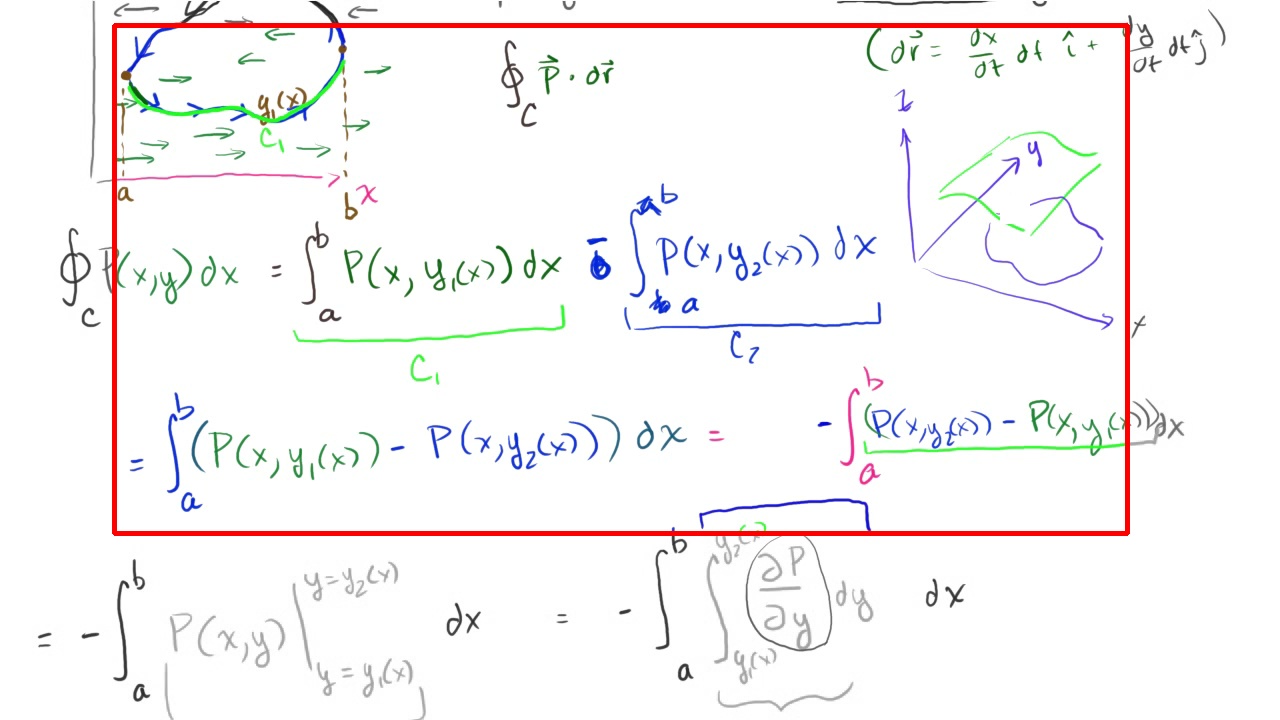 y
∮_C P⃗ · dr⃗
(dr⃗ = dx/dt dt î + dy/dt dt ĵ)
y₁(x)
C₁
a b x
z y x
∮_C P(x,y) dx = ∫_a^b P(x, y₁(x)) dx - ∫_a^b P(x, y₂(x)) dx
C₁ C₂
= ∫_a^b (P(x, y₁(x)) - P(x, y₂(x))) dx = - ∫_a^b (P(x, y₂(x)) - P(x, y₁(x))) dx
= - ∫_a^b P(x,y) |_{y = y₁(x)}^{y = y₂(x)} dx = - ∫_a^b ∫_{y₁(x)}^{y₂(x)} ∂P/∂y dy dx